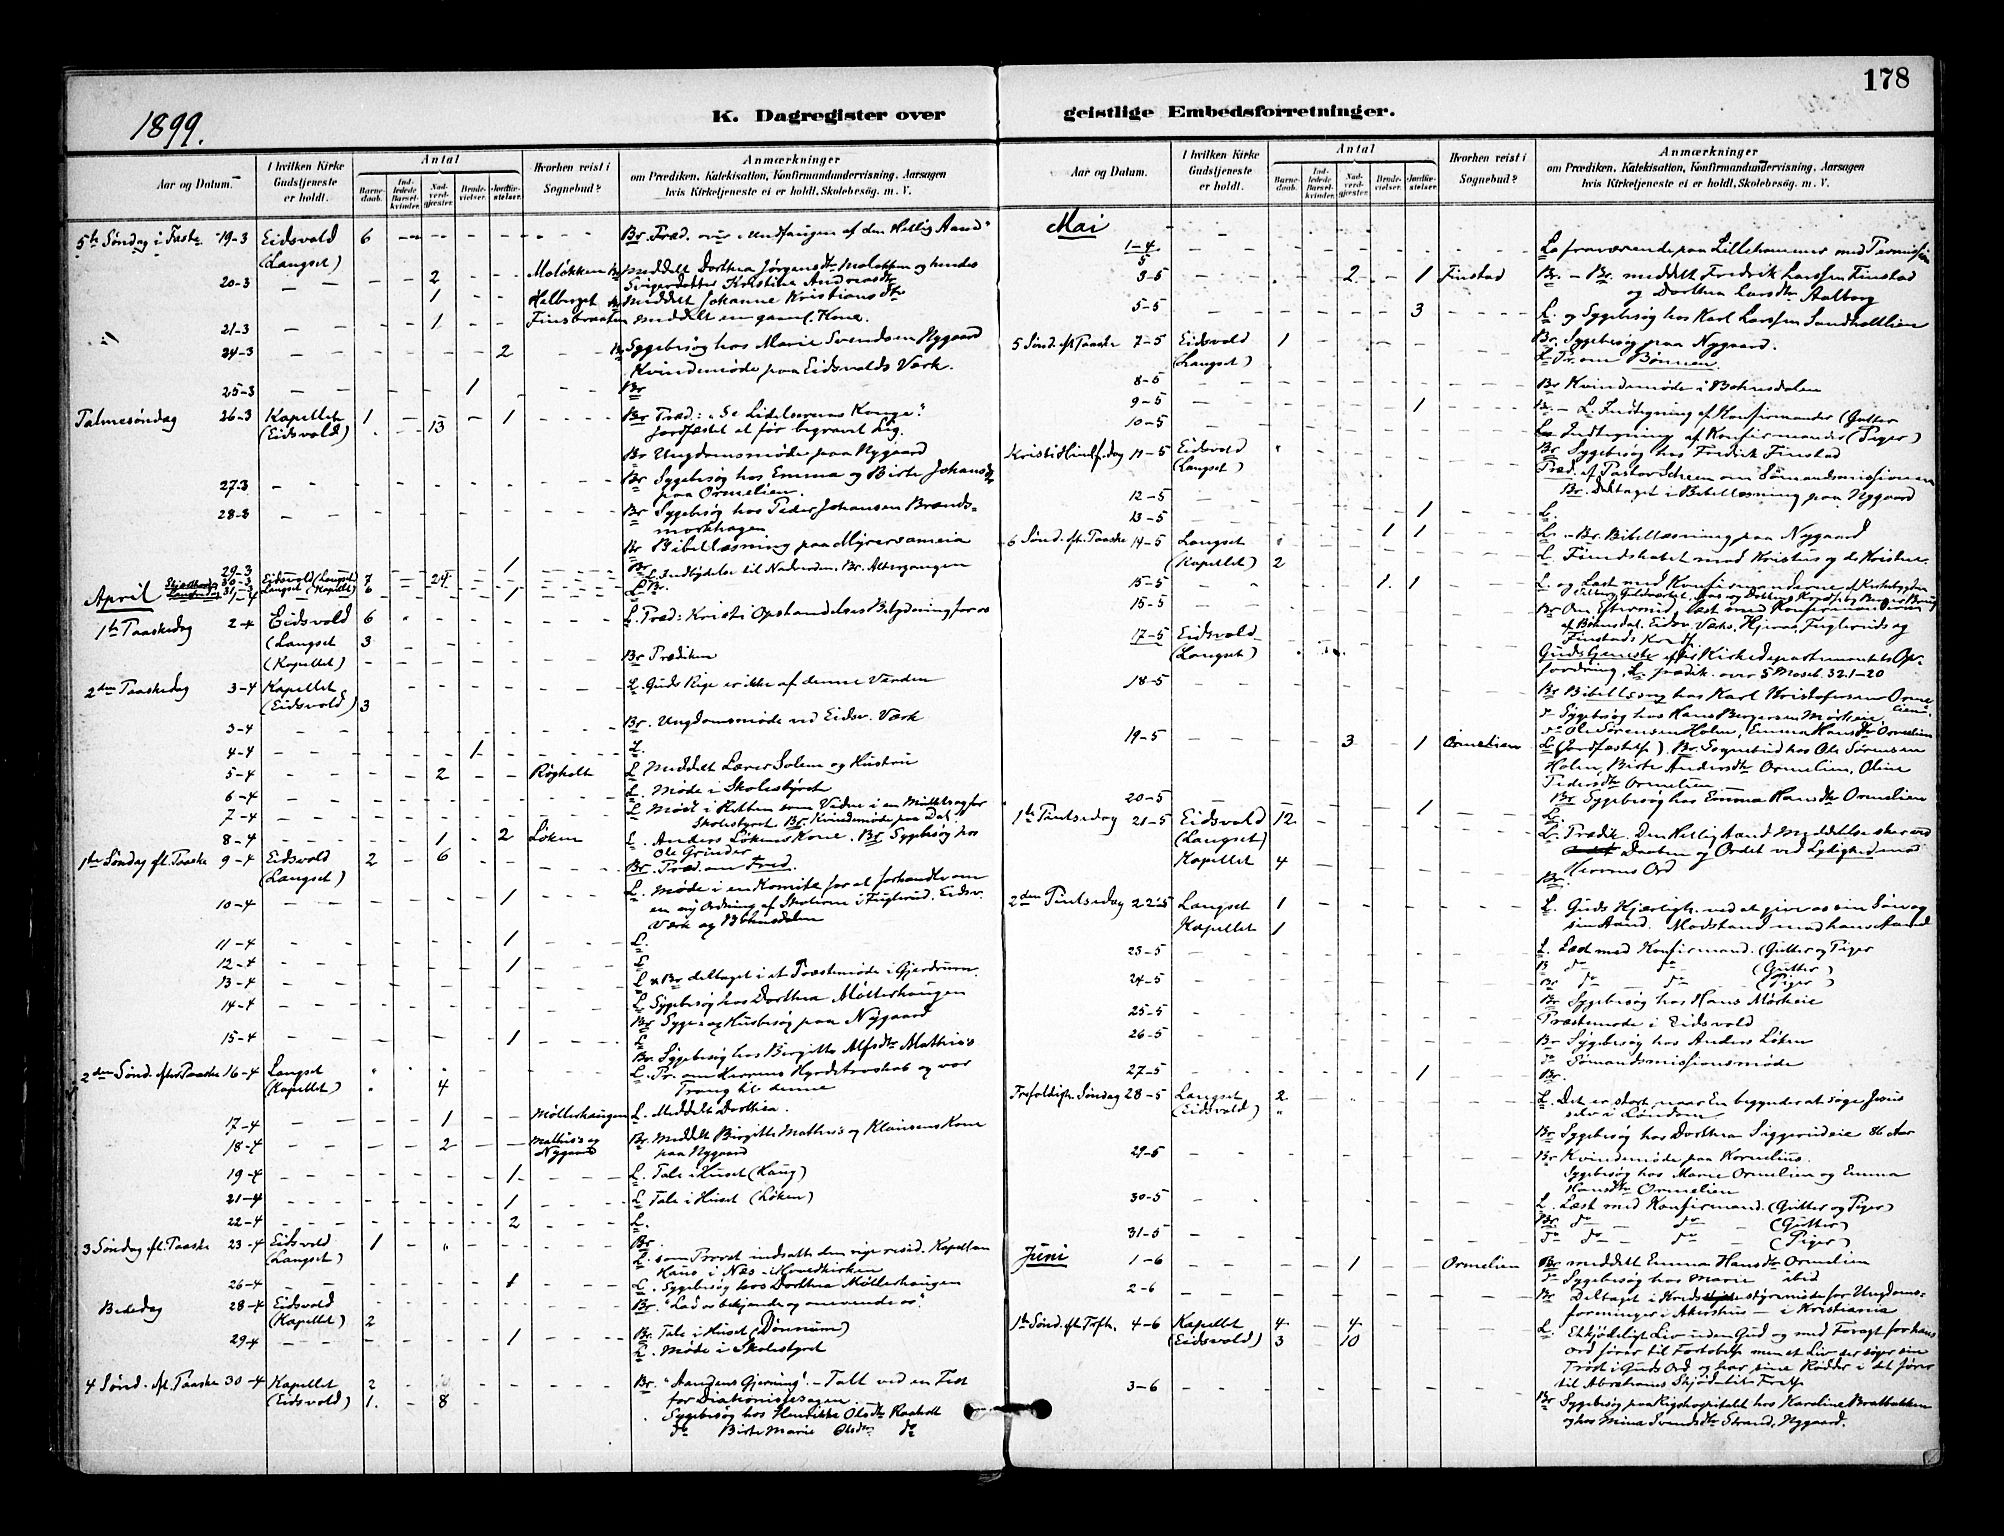 178
1899.
K. Dagregister over geistlige Embedsforretninger.
Aar og Datum. I hvilken Kirke Gudstjeneste er holdt. Antal Barnedaab. Indledede Barselkvinder. Nadverdgjæster. Brudevielser. Jordfæstelser. Hvorhen reist i Sognebud? Anmærkninger om Prædiken, Katekisation, Konfirmandundervisning, Aarsagen hvis Kirketjeneste ei er holdt, Skolebesøg. m. V.
19-3 Eidsvold 6 Br. Præd. over
(Langset)
20-3 2 meddelt Dorthea
1 meddelt Johanne Kristiansdtr
21-3 1 meddelt en gammel Kone.
24-3 2 Sygebesøg hos Marie Svendsen Nygaard
Kvindemøde paa Eidsvolds Værk.
25-3 1 Br
Palmesøndag 26-3 Kapellet 1 1 Br Præd:
(Eidsvold) 13 Jordfæstet et før begravet Lig.
Br Ungdomsmøde paa Nygaard
27-3 Br Sygebesøg hos Emma og Birte
paa Ormelien.
28-3 Br Sygebesøg hos Peder Johansen
Br Bibellæsning paa
29-3 1 Br
30-3 Eidsvold (Langset) 7 24
April 31-3 Langset (Kapellet) 6 L Br.
1-4 1
1ste Paaskedag 2-4 Eidsvold 6 L. Præd: Kristi Opstandelses Betydning for os
(Langset 3
(Kapellet) Br Prædiken
2den Paaskedag 3-4 Kapellet L. Guds Rige er ikke af denne Verden
(Eidsvold) 3
3-4 Br. Ungdomsmøde ved Eidsv. Værk
4-4 1 L.
5-4 2 Røgholt L meddelt Lærer Solem og Hustru
6-4 L. Møde i Skolestyret
7-4 L Mødt i Retten som Vidne i en
Skolestyret Br. Kvindemøde paa Dal.
8-4 1 2 Løken L. Anders Løkens Kone. Br Sygebesøg hos
Ole Grinder
1ste Søndag eft. Paaske 9-4 Eidsvold 2 6 Br. Præd. om Fred.
(Langset)
10-4 1 L. Møde i en Komite for at forhandle om
en ny Ordning af Skolerne i Fuglerud, Eidsv.
Værk og Bøhnsdalen
11-4 1 L.
12-4 1 L
13-4 L & Br deltaget i et Præstemøde i Gjerdrum.
14-4 L Sygebesøg hos Dorthea Møllerhaugen
Br Syge- og Husbesøg paa Nygaard
15-4 1 L
Br. Sygebesøg hos Birgitte Alfsdtr Mathiis
2den Sønd. efter Paaske 16-4 Langset L. Pr. om Herrens Hyrdetroskab og vor
(Kapellet) 4 Trang til denne
17-4 1 Møllerhaugen L. Meddelt Dorthea.
18-4 2 Mathiis og Nygaard Br. Meddelt Birgitte Mathiis og Klausens Kone
paa Nygaard
19-4 1 L. Tale i Huset (Haug)
21-4 1 L Tale i Huset (Løken)
22-4 2 L.
3 Søndag eft. Paaske 23-4 Eidsvold 1 Br.
(Langset) L som Provst indsatte den nye resid. Kapellan
Haus i Næs Hovedkirken
26-4 1 L. Sygebesøg hos Dorthea Møllerhaugen
Bededag 28-4 Eidsvold Br. "Lad os bekjende og omvende os".
(Kapellet) 2
29-4 1 Br. Tale i Huset (Dønnum)
L. Møde i Skolestyret
4 Sønd. eft. Paaske 30-4 Kapellet 2 Br. "Aandens Gjerning". Talt ved en Fest
(Eidsvold) 1 8 for Diakonissesagen.
Sygebesøg hos Henrikke Olsdtr Raaholt
do Birte Marie Olsdtr do
Aar og Datum. I hvilken Kirke Gudstjeneste er holdt. Antal Barnedaab. Indledede Barselkvinder. Nadverdgjæster. Brudevielser. Jordfæstelser. Hvorhen reist i Sognebud? Anmærkninger om Prædiken, Katekisation, Konfirmandundervisning, Aarsagen hvis Kirketjeneste ei er holdt, Skolebesøg. m. V.
Mai
L fraværende paa Lillehammer med Permission
3-5 2 1 Finstad Br. meddelt Fredrik Larssen Finstad
og Dorthea Larsdtr Aalborg
5-5 3 L. og Sygebesøg hos Karl Larssen
5 Sønd. eft. Paaske 7-5 Eidsvold 1 Br. Sygebesøg paa Nygaard.
(Langset) L Pr. om Bønnen.
8-5 Br Kvindemøde i Bøhnsdalen
9-5 1 Br. - L. Indtegning af Konfirmander (Gutter
10-5 Indtegning af Konfirmander (Piger)
Kristi Himlf.dag 11-5 Eidsvold Br Sygebesøg hos Fredrik Finstad
(Langset) Præd. af Pastor Scheen om Sømandsmissionen
12-5 Br. Deltaget i Bibellæsning paa Nygaard
13-5 1 L.
6 Sønd. eft. Paaske 14-5 Langset 1 1 L. - Br. Bibellæsning paa Nygaard
(Kapellet) 2 L. Fiendskabet mod Kristus og de Kristne.
15-5 1 1 L. og Læst med Konfirmanderne af
15-5 Br Om Eftermid. læst med Konfirmanderne
af Bøhnsdal. Eidsv. Værk, Fuglerud og
17-5 Eidsvold Finstads Kreds
(Langset) Gudstjeneste efter Kirkedepartementets Opfordring,
L. prædik. over 5 Moseb. 32.1-20
18-5 Br Bibellæsning hos Karl Kristofersen
do Sygebesøg hos Hans Bergersen Mørkeie,
do Ole Sørensen Holm, Emma Hansdtr Ormelien
19-5 3 1 Ormelien L (Jordfæstelse). Br. Sognebud hos Ole Sørensen
Holm Birte Andersdtr Ormelien, Oline
Pedersdtr Ormelien
20-5 Br Sygebesøg hos Emma Hansdtr Ormelien
1ste Pintsedag 21-5 Eidsvold 12 1 L.
(Langset) L. Prædik. Den Hellig Aands Meddelelse sker ved
Kapellet 4 Daaben og Ordet ved Lydighed mod
Herrens Ord
Br.
2den Pintsedag 22-5 Langset 1 L. Guds Kjærligh. ved at give os sin Søn og
Kapellet 1 sin Aand. Modstand mod hans Aand
23-5 L. Læst med Konfirmand. (Gutter og Piger
B do do (Gutter)
24-5 Br do do (Piger)
Br Sygebesøg hos Hans Mørkeie
25-5 Præstemøde i Eidsvold
26-5 Br Sygebesøg hos Anders Løken
do Sømandsmissionsmøde
27-5 1 Br.
Trefoldigh. Søndag 28-5 Langset 2 L. Det er stort naar En begynder at søge Jesus
(Eidsvold) selv i Løndom
Br Sygebesøg hos Dorthea Siggerudeie 86 Aar
29-5 Br Kvindemøde paa Kornelius.
Sygebesøg hos Marie Ormelien og Emma
Hansdtr Ormelien
30-5 L. Læst med Konfirmand. (Gutter og Piger)
Br. do do (Gutter)
31-5 do do do (Piger)
Juni 1-6 1 Ormelien Br meddelt Emma Hansdtr Ormelien
do Sygebesøg hos Marie ibid
2-6 Br Deltaget i Kredsstyremøde for Ungdomsforeninger
i Akershus - i Kristiania
1ste Sønd. eft. Trefh. 4-6 Kapellet 4 4 L. Et kjødeligt Liv uden Gud og med Foragt for hans
(Eidsvold) 3 10 ord fører til Fortabelse men et Liv der søger sin
Trøst i Guds Ord og har sine Rødder i det fører
3-6 til Abrahams Skjød til Frelse
Br Sygebesøg paa Rigshospitalet hos Karoline Bratbakken
og hos Mina Svendsdtr Strand, Nygaard.